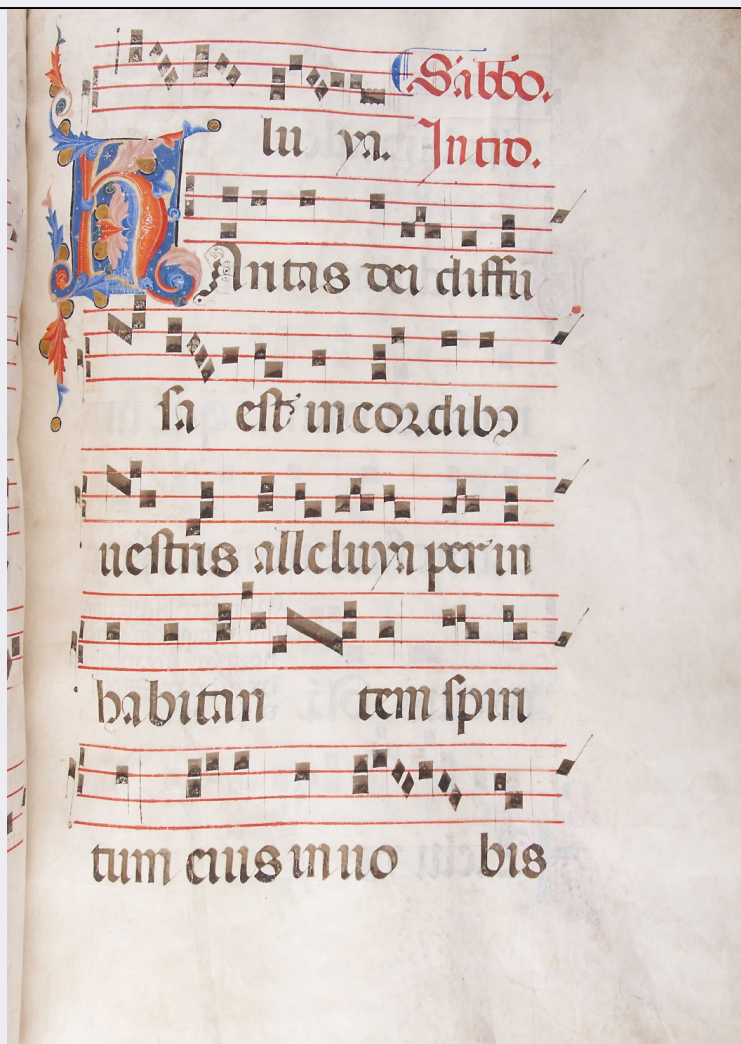 lu ya. Sabbo.
Intro.
Karitas dei diffu
sa est in cordibꝰ
nestris alleluya per in
habitan tem spiri
tum eius in uo bis